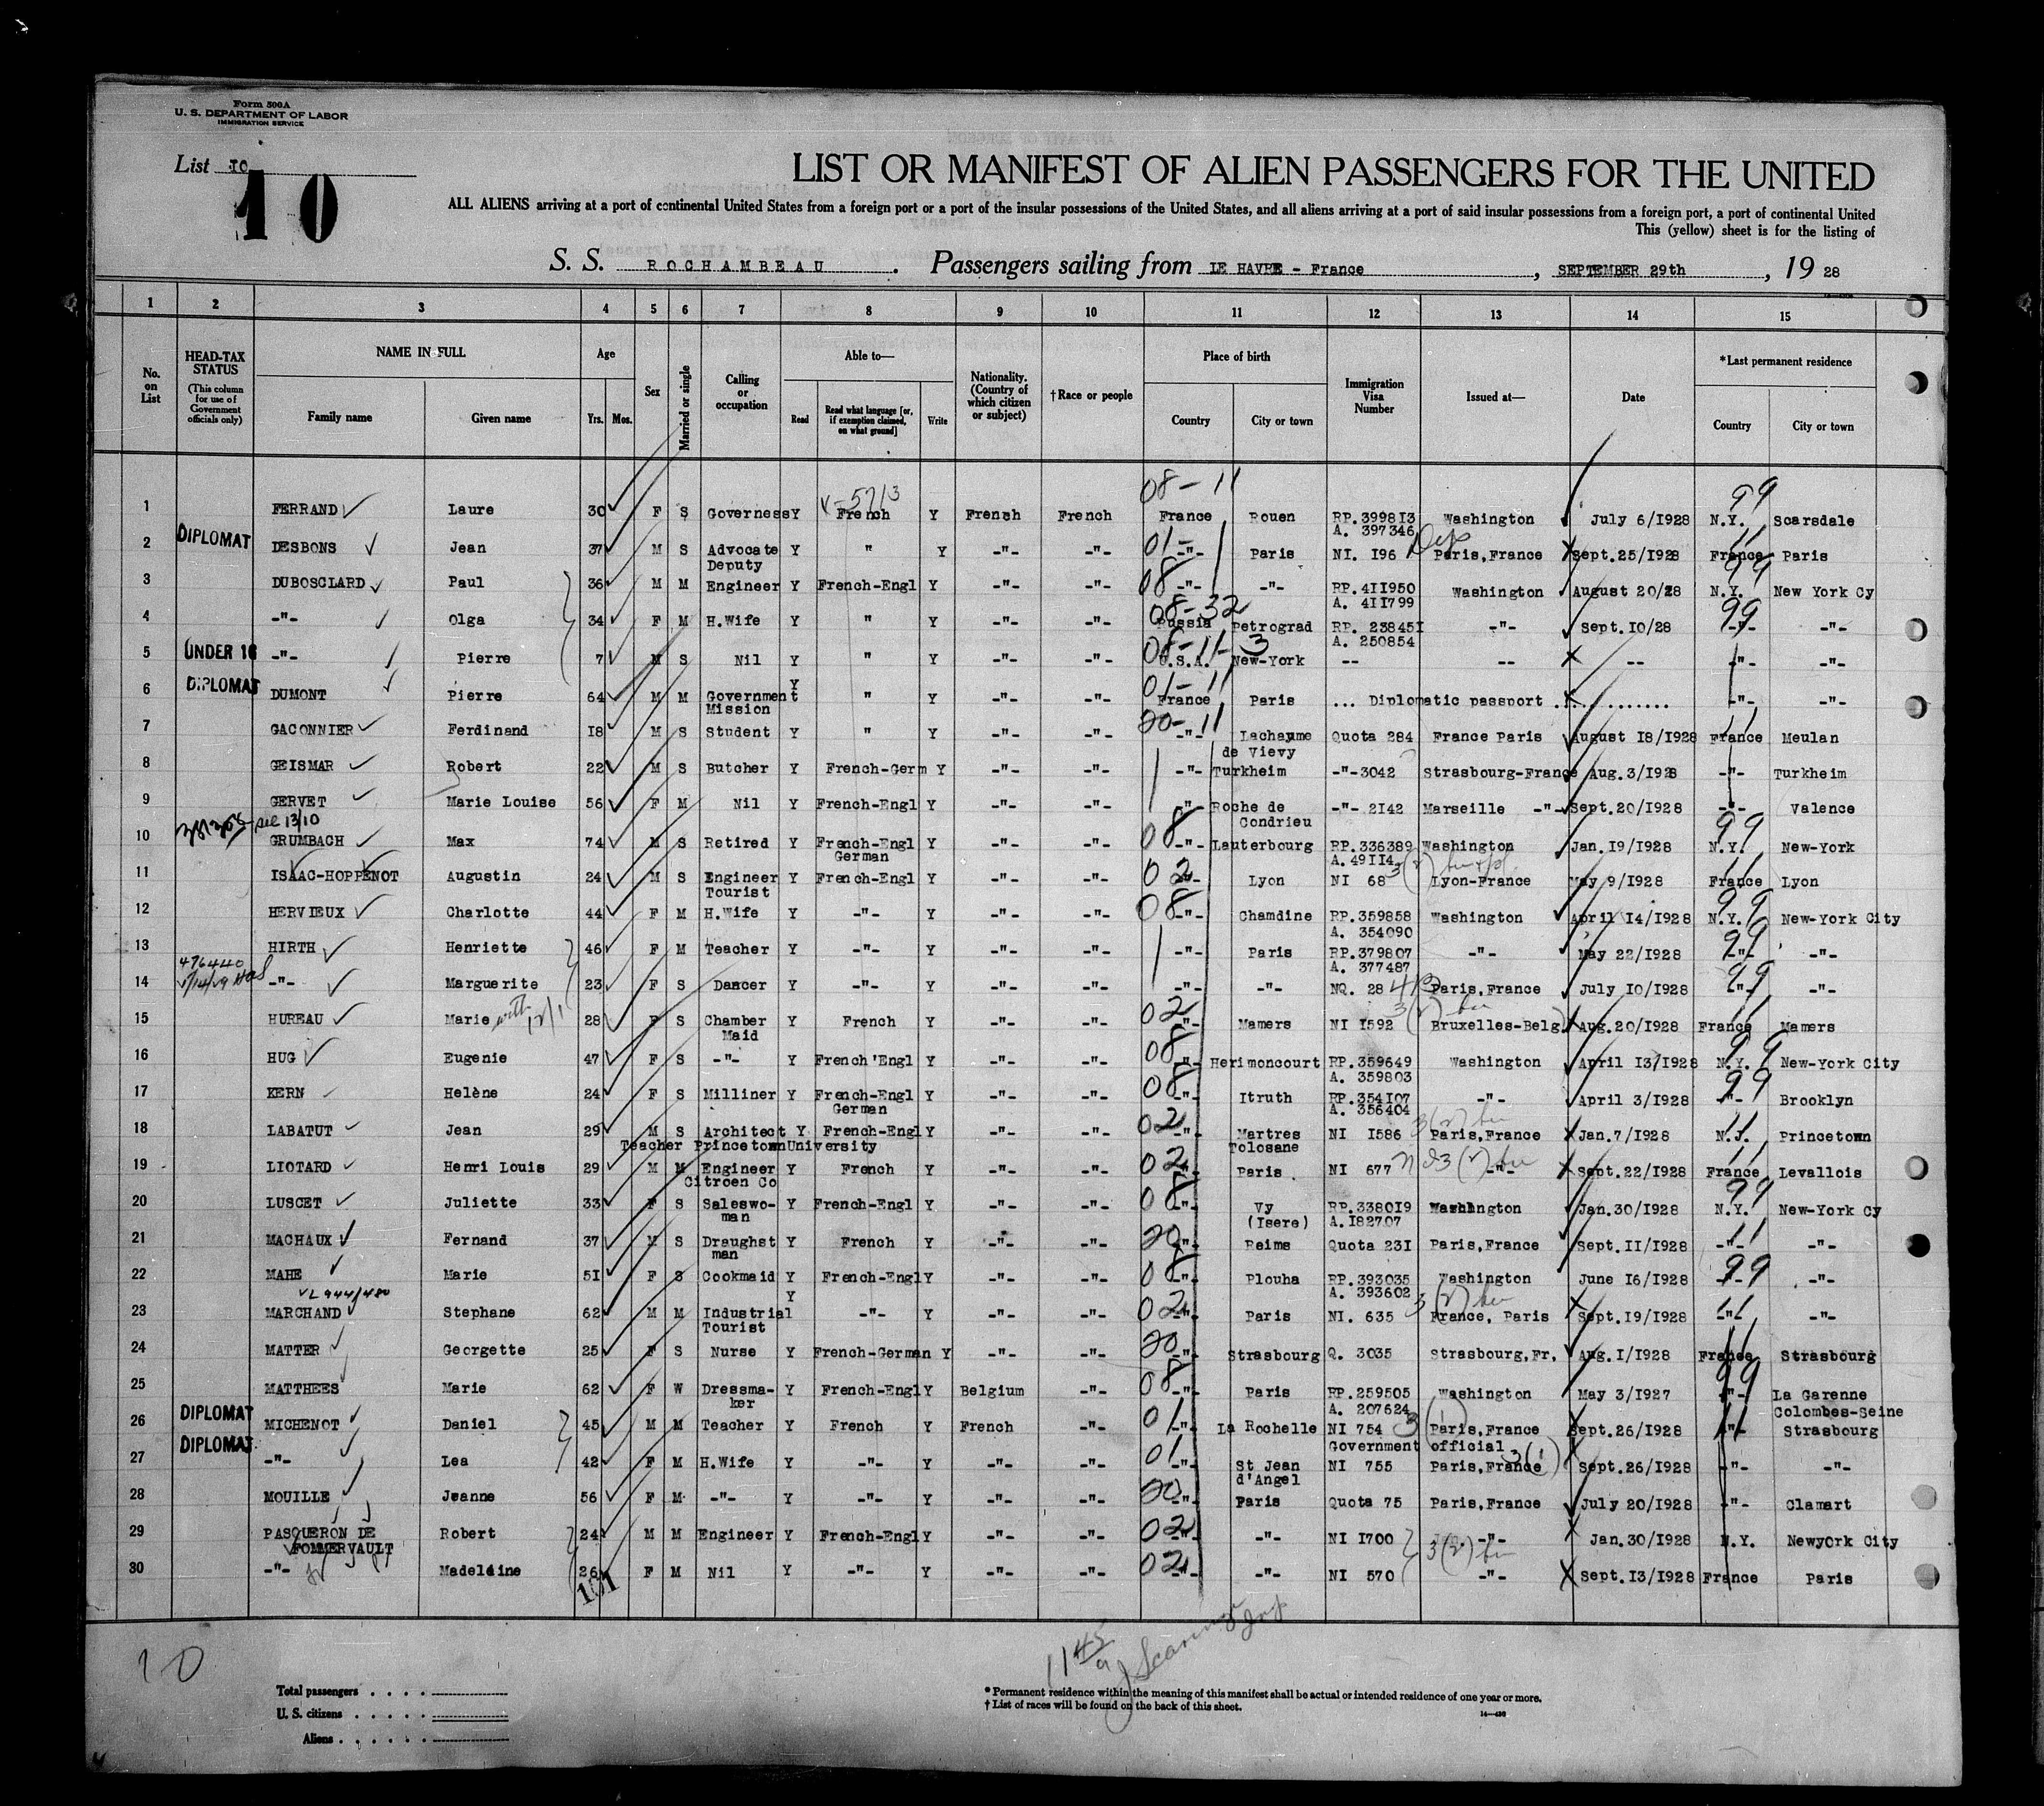 Form 500A
U. S. DEPARTMENT OF LABOR
IMMIGRATION SERVICE
List 10
10
LIST OR MANIFEST OF ALIEN PASSENGERS FOR THE UNITED
ALL ALIENS arriving at a port of continental United States from a foreign port or a port of the insular possessions of the United States, and all aliens arriving at a port of said insular possessions from a foreign port, a port of continental United
This (yellow) sheet is for the listing of
S. S. ROCHAMBEAU . Passengers sailing from LE HAVRE - France , SEPTEMBER 29th , 19 28
1 2 3 4 5 6 7 8 9 10 11 12 13 14 15
No. on List
HEAD-TAX STATUS (This column for use of Government officials only)
NAME IN FULL
Family name Given name
Age
Yrs. Mos.
Sex
Married or single
Calling or occupation
Able to—
Read Read what language [or, if exemption claimed, on what ground] Write
Nationality. (Country of which citizen or subject)
†Race or people
Place of birth
Country City or town
Immigration Visa Number
Issued at—
Date
*Last permanent residence
Country City or town
08-11 99
V-5713
1 FERRAND Laure 30 F S Governess Y French Y French French France Rouen RP.399813 Washington July 6/1928 N.Y. Scarsdale
A. 397346
2 DIPLOMAT DESBONS Jean 37 M S Advocate Y " Y -"- -"- 01- -"- Paris NI. 196 Paris,France Sept.25/1928 France Paris
Deputy
3 DUBOSCLARD Paul 36 M M Engineer Y French-Engl Y -"- -"- 08 -"- -"- RP.411950 Washington August 20/28 N.Y. New York Cy
A. 411799
4 -"- Olga 34 F M H.Wife Y " Y -"- -"- 08-32 Russia Petrograd RP. 238451 -"- Sept.10/28 99 -"- -"-
A. 250854
5 UNDER 16 -"- Pierre 7 M S Nil Y " Y -"- -"- 08-11-3 U.S.A. New-York -- -- -- -"- -"-
6 DIPLOMAT DUMONT Pierre 64 M M Government Y " Y -"- -"- 01-11 France Paris ... Diplomatic passport ............ -"- -"-
Mission
7 GACONNIER Ferdinand 18 M S Student Y " Y -"- -"- 20-11 -"- Lachaume Quota 284 France Paris August 18/1928 France Meulan
de Vievy
8 GEISMAR Robert 22 M S Butcher Y French-Germ Y -"- -"- -"- Turkheim -"-3042 Strasbourg-France Aug.3/1928 -"- Turkheim
9 GERVET Marie Louise 56 F M Nil Y French-Engl Y -"- -"- -"- Roche de -"- 2142 Marseille -"- Sept.20/1928 -"- Valence
Condrieu
10 GRUMBACH Max 74 M S Retired Y French-Engl Y -"- -"- 08 -"- Lauterbourg RP.336389 Washington Jan.19/1928 99 N.Y. New-York
German A.49114
11 ISAAC-HOPPENOT Augustin 24 M S Engineer Y French-Engl Y -"- -"- 02 -"- Lyon NI 68 Lyon-France May 9/1928 France Lyon
Tourist
12 HERVIEUX Charlotte 44 F M H.Wife Y -"- Y -"- -"- 08 -"- Chamdine RP.359858 Washington April 14/1928 99 N.Y. New-York City
A. 354090
13 HIRTH Henriette 46 F M Teacher Y -"- Y -"- -"- -"- Paris RP.379807 -"- May 22/1928 99 -"- -"-
476440 A. 377487
14 -"- Marguerite 23 F S Dancer Y -"- Y -"- -"- -"- -"- NQ. 28 Paris,France July 10/1928 99 -"- -"-
15 HUREAU Marie with 28 F S Chamber Y French Y -"- -"- 02 -"- Mamers NI 1592 Bruxelles-Belg. Aug.20/1928 France Mamers
Maid
16 HUG Eugenie 47 F S -"- Y French'Engl Y -"- -"- 08 -"- Herimoncourt RP.359649 Washington April 13/1928 99 N.Y. New-York City
A. 359803
17 KERN Helène 24 F S Milliner Y French-Engl Y -"- -"- 08 -"- Itruth RP.354107 -"- April 3/1928 99 -"- Brooklyn
German A. 356404
18 LABATUT Jean 29 M S Architect Y French-Engl Y -"- -"- 02 -"- Martres NI 1586 Paris,France Jan.7/1928 N.J. Princetown
Teacher Princetown University Tolosane
19 LIOTARD Henri Louis 29 M M Engineer Y French Y -"- -"- 02 -"- Paris NI 677 -"- Sept.22/1928 France Levallois
Citroen Co
20 LUSCET Juliette 33 F S Saleswo- Y French-Engl Y -"- -"- 08 -"- Vy RP.338019 Washington Jan.30/1928 99 N.Y. New-York Cy
man (Isere) A.182707
21 MACHAUX Fernand 37 M S Draughst Y French Y -"- -"- 20 -"- Reims Quota 231 Paris,France Sept.11/1928 -"- -"-
man
22 MAHE Marie 51 F S Cookmaid Y French-Engl Y -"- -"- 08 -"- Plouha RP.393035 Washington June 16/1928 99 -"- -"-
A. 393602
23 MARCHAND Stephane 62 M M Industrial Y -"- Y -"- -"- 02 -"- Paris NI. 635 France, Paris Sept.19/1928 -"- -"-
Tourist
24 MATTER Georgette 25 F S Nurse Y French-German Y -"- -"- 20 -"- Strasbourg Q. 3035 Strasbourg,Fr, Aug.1/1928 France Strasbourg
25 MATTHEES Marie 62 F W Dressma- Y French-Engl Y Belgium -"- 08 -"- Paris RP.259505 Washington May 3/1927 99 -"- La Garenne
ker A. 207624 Colombes-Seine
26 DIPLOMAT MICHENOT Daniel 45 M M Teacher Y French Y French -"- 01 -"- La Rochelle NI 754 Paris,France Sept.26/1928 -"- Strasbourg
Government official
27 DIPLOMAT -"- Lea 42 F M H.Wife Y -"- Y -"- -"- 01 -"- St Jean NI 755 Paris,France Sept.26/1928 -"- -"-
d'Angel
28 MOUILLE Jeanne 56 F M -"- Y -"- Y -"- -"- 20 -"- Paris Quota 75 Paris,France July 20/1928 -"- Clamart
29 PASQUERON DE Robert 24 M M Engineer Y French-Engl Y -"- -"- 02 -"- -"- NI 1700 -"- Jan.30/1928 N.Y. Newyork City
FOMMERVAULT
30 -"- Madeleine 26 F M Nil Y -"- Y -"- -"- 02 -"- -"- NI 570 -"- Sept.13/1928 France Paris
101
10
Total passengers . . . .
U. S. citizens . . . . .
Aliens . . . . . .
* Permanent residence within the meaning of this manifest shall be actual or intended residence of one year or more.
† List of races will be found on the back of this sheet.